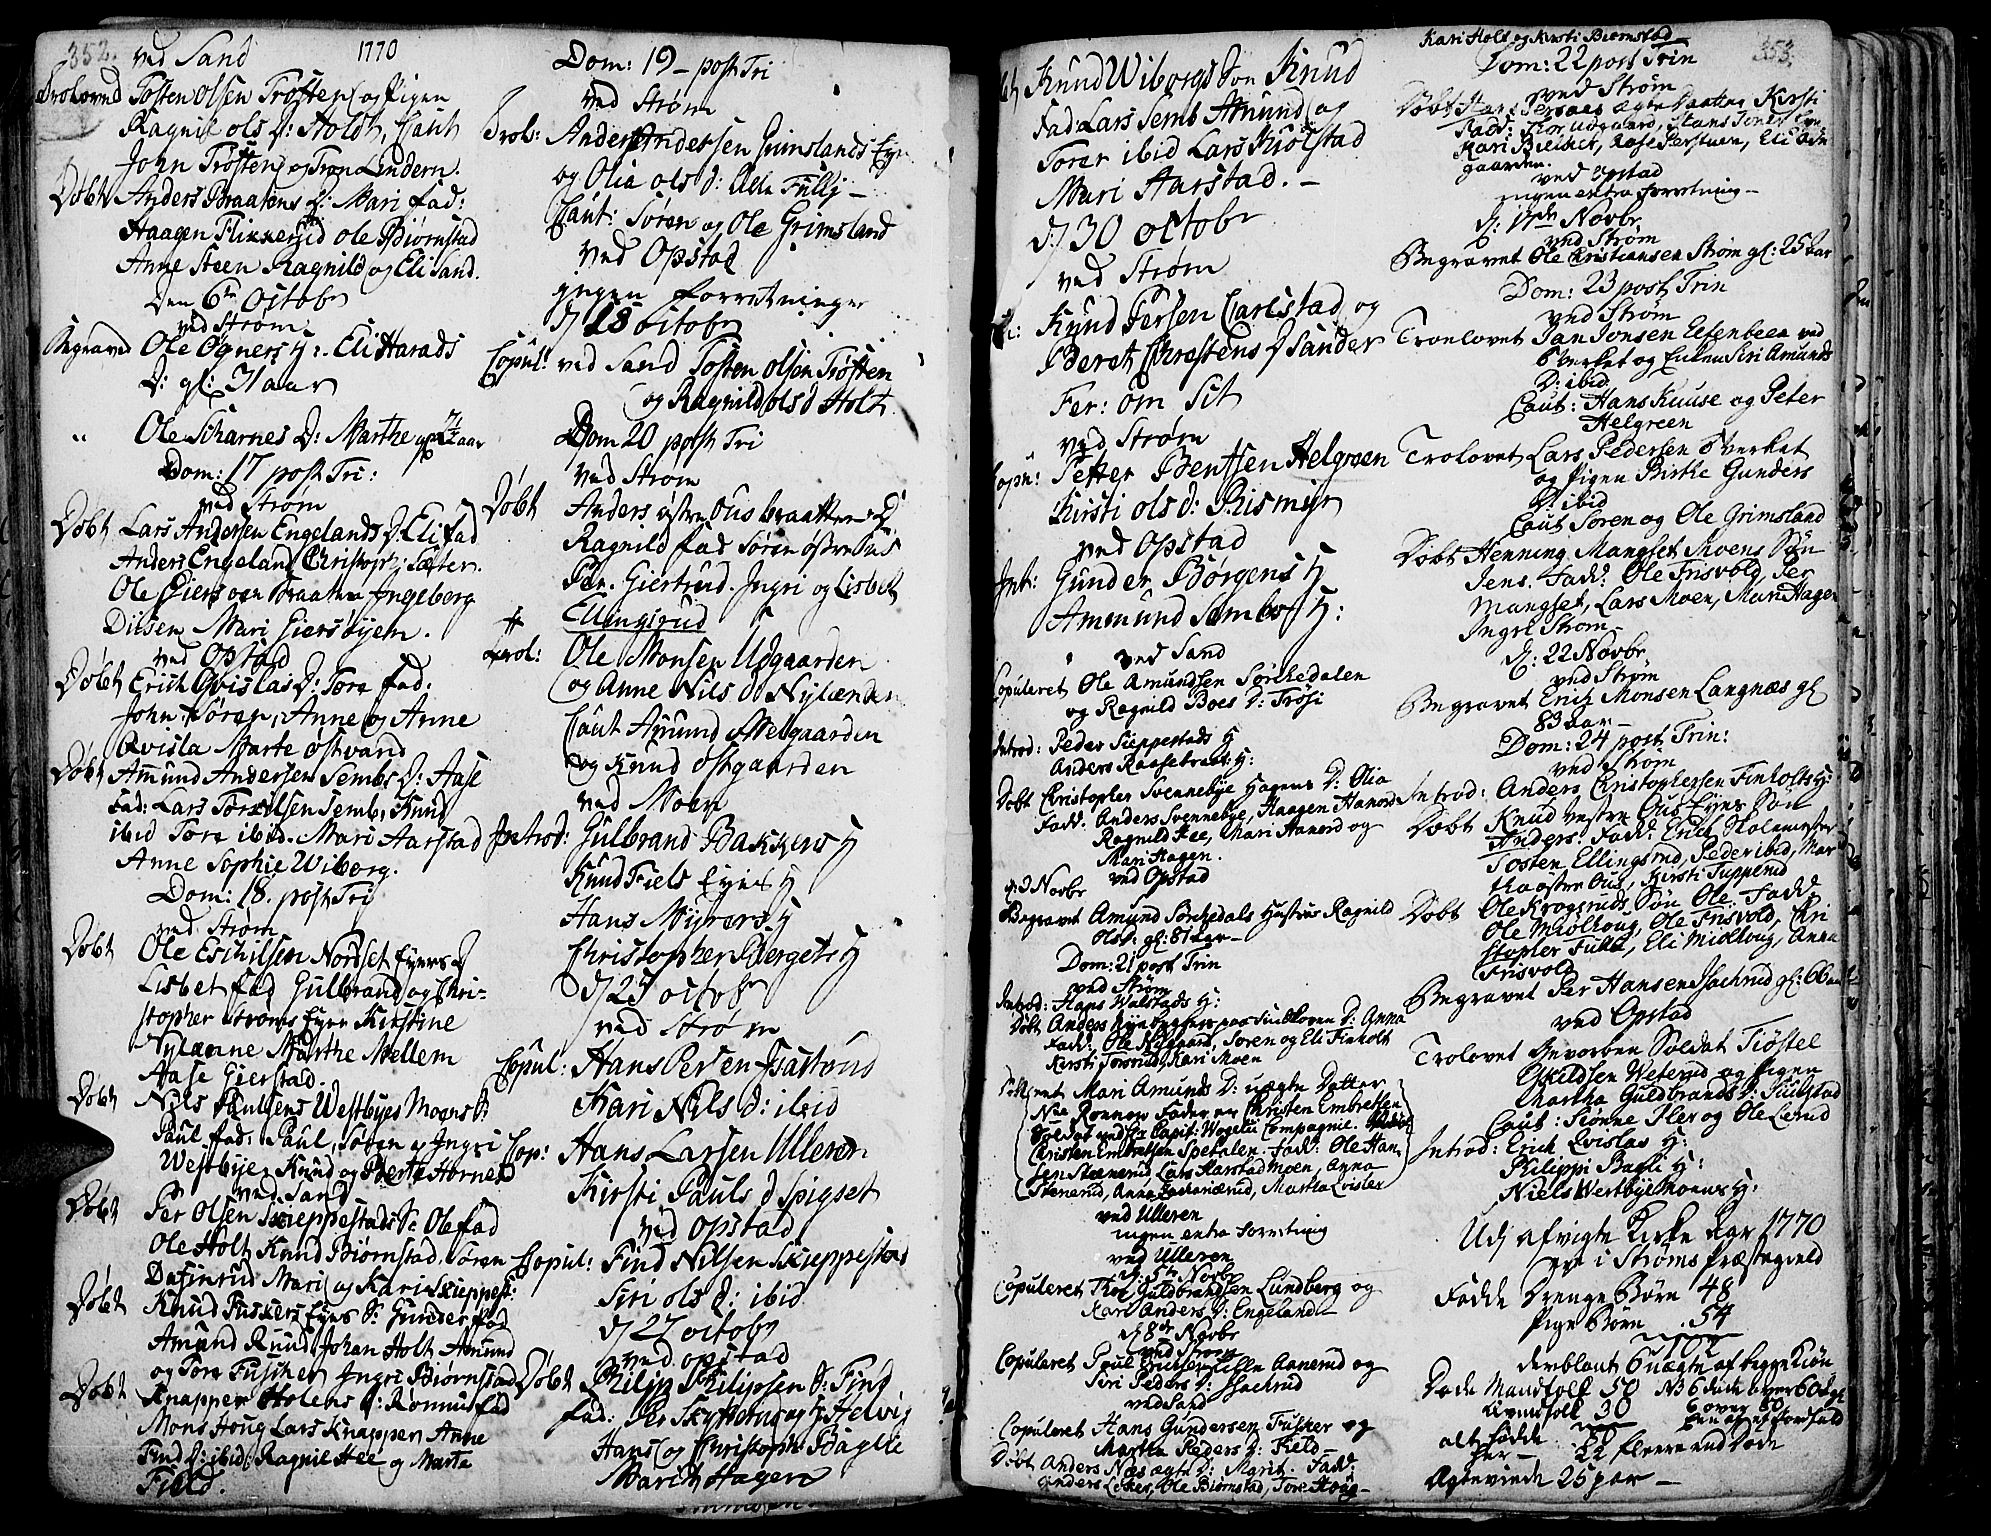 352.
ved Sand 1770
Troloved Tosten Olsen Trøsten og Pigen
Ragnil ols D: Holdt, Caut
John Trøsten og Tron Lindern.
Døbt Anders Braatens D: Mari fad:
Haagen Flikkerud ole Biørnstad
Anne Steen Ragnild og Eli Sand.
Den 6te Octobr
ved Strøm
Begraved Ole Ogners H: Eli Harads
D: gl: 31 aar
" Ole Skarnes D: Marthe gl aar
Dom: 17 post Tri:
ved Strøm
Døbt Lars Andersen Engelands D: Eli fad
Anders Engeland Christoph: Sæter.
Ole Giersøen Braaten Ingeborg
Disen Mari Giersøyem.
ved Opstad
Døbt Erich Qvislas D: Tore fad:
John Søren, Anne og Anne
Qvisla Marte Østvand
Døbt Amund Andersen Sembs D: Aase
fad: Lars Torkilsen Semb, Knud
ibid Tore ibid. Mari Aarstad
Anne Sophie Wiborg.
Dom: 18. post Tri
ved Strøm
Døbt Ole Eskilsen Nordset Eyes D
Lisbet fad Gulbrand og Chri-
stopher Strøms Eye Kirstine
Nylænne Marthe Mellem
Aase Gierstad.
Døbt Nils Paulsens Westbyes Moens S:
Paul fad: Paul, Søren og Ingri
Westbye Knud og Berte Hornes
ved Sand
Døbt Per Olsen Skieppestads S: Ole fad
Ole Holt Knud Biørnstad, Søren
Dafinrud Mari og Kari Skieppest:
Døbt Knud Fuskers Eyes S: Gunder fad
Amund Ruud, Johan Holt Amund
og Tore Fuscher Ingri Biørnstad
Døbt Knappen Holens S: Rønnus fad
Mons Houg Lars Knappen Anne
Find D: ibid: Ragnil Hee og Marta
Field.
Dom: 19 - post Tri
ved Strøm
Trol: Anders Andersen Grimslands Eye
og Olia ols D: Fulli -
Caut: Søren og Ole Grimsland
ved Opstad
ingen forretninger
d 18 octobr
Copul: ved Sand Tosten Olsen Trøsten
og Ragnild ols d Holt
Dom 20 post Tri
ved Strøm
Døbt Anders østre Ous braatten D
Ragnild fad Søren østre Ous
Per. Giertrud. Ingri og Lisbet
Ellingsrud
Trol: Ole Monsen Udgaarden
og Anne Nils d Nylænden
Caut Amund Melgaarden
og Knud Østgaarden
ved Moen
Introd: Gulbrand Bakkens H
Knud Fiels Eyes H
Hans Myrers H
Christopher Bergets H
d 25 octobr
ved Strøm
Copul: Hans Persen Isachrud
Kari Nils d: ibid
Cop: Hans Larsen Ulleren
Kirsti Pauls d Spigset
ved Opstad
Copul: Find Nilsen Skieppestad
Siri ols d: ibid
d 27 octobr
ved Opstad
Døbt Philip Philipsen S: Find
fad: Per Skytterud og H Helvig
Hans og Christoph: Baglie
Marit Hagen
Knud Wiborgs Søn Knud
Fad Lars Semb Amund og
Torer ibid Lars Kiølstad
Mari Aarstad. -
d/ 30 octobr
ved Strøm
Knud Persen Carlstad og
Beret Christens D Sander
Fer: om Sit
ved Strøm
Copu: Petter Bentsen Helgreen
Kirsti ols d: Rismyr
ved Opstad
Int: Gunder Børgens H
Ammund Sembs H:
ved Sand
Copuleret Ole Amundsen Sørkedalen
og Ragnild Boes D: Trøsi
Introd: Peder Sieppestads H
Anders Raasetraet H:
Døbt Christopher Svennebye Hagens D: Olia
Fadd: Anders Svennebye, Haagen Hanerd
Ragnild Hee, Mari Hanerd og
Mari Hagen.
ved Opstad
d: 2 Novbr
Begravet Amund Sørkedals Hustrue Ragnild
Olsd: gl: 81 aar -
Dom: 21 post Trin
ved Strøm
Introd: Hans Walstads H:
Døbt Anders D: Anna
Fadd: Ole Nygaard, Søren og Eli Finholt
Kirsti Torsrud, Kari Moen
Døbt Mari Amunds D: uægte Datter
Christen Embretsen
Soldat under Capit: Wogelii Compagnie.
Christen Embretsen Spetalen. Fadd: Ole Han-
sen Skenerud, Lars Harstad Moen, Anna
Skenerud, Anna Zachariærud, Martha Qvisler
ved Ulleren
ingen extra Forretning
ved Ulleren
d: 5te Novbr
Copuleret Thor Guldbrandsen Lundberg og
Kari Anders D: Engeland -
d 8de Novbr
ved Strøm
Copuleret Poul Ericksen Lille Aanerud og
Siri Peders D: Isachrud
ved Sand
Copuleret Hans Gundersen Fusker og
Martha Peders D: Field -
Døbt Anders Næs ægte D: Marit. Fadd
Anders Leeker, Ole Biørnstad, Tore Houg -
Kari Hols og Kirsti Biørnstad -
353.
Dom: 22 post Trin
ved Strøm
Døbt Hans Persons ægte Daatter Kirsti
Fadd:
Kari Bielker, Aase Perstuen, Eli Udn
gaarden.
ved Opstad
ingen extra Forretning -
d: 17de Novbr
ved Strøm
Begravet Ole Christiansen Strøm gl: 25 aar
Dom: 23 post Trin
ved Strøm
Trolovet Jan Jonsen Elfenbeen ved
Verket og Enken Siri Amunds
D: ibid
Caut: Hans Kuuse og Peter
Helgreen
Trolovet Lars Pedersen Verket
og Pigen Birthe Gunders
D: ibid
Caut Søren og Ole Grimsland
Døbt Henning Mangset Moens Søn
Jens. Fadd: Ole Frisvold, Per
Mangset, Lars Moen, Mari Hagen
Ingri Strøm -
d: 22 Novbr
ved Strøm
Begravet Erich Monsen Langnæs gl
83 aar -
Dom: 24 post Trin:
ved Strøm
Introd: Anders Christophersen Finholts H:
Døbt Knud Vestre Ous Eyes Søn
Anders. Fadd: Erich Skolemester
Tosten Ellingsrud, Peder ibid, Mar
tha østre Ous, Kirsti Tuppenud
Døbt Ole Krogsruds Søn Ole. Fadd
Ole Midlhoug, Ole Frisvold, Chri
stopher Fulli, Eli Midlhoug, Anna
Frisvold
Begravet Per Hansen Isachrud gl: 66 aar
ved Opstad
Trolovet Gevorben Soldat Tiøstel
Eskildsen Weterud og Pigen
Martha Guldbrands D: Fulstad
Caut: Siønne Fler og Ole Lerud
Introd: Erich Qvislas H:
Philippi Bagli H:
Niels Westbye Moens H:
Udj afvigte Kirke Aar 1770
ere i Strøms Præstegield
Fødde Drenge Børn 48
Pige Børn 54
102
deriblant 6 uægte af begge Kiøn
Døde Mandfolk 50 NB 6 døde over 60 aar
Qvindfolk 30 6 over 80
alt - 80
Fødde fleere end Døde
her - 22
Ægteviede 25 par -